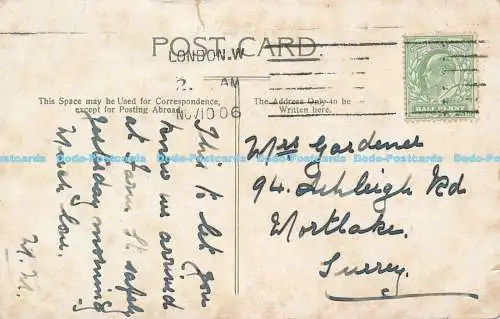 POST CARD.
LONDON.W
2. AM
NO 10 06
HALFPENNY
This Space may be Used for Correspondence,
except for Posting Abroad.
The Address Only to be
Written here.
This to let you
know we arrived
at Farm St. safely
yesterday morning
Much love.
Mrs Gardener
94. Ashleigh Rd
Mortlake.
Surrey.
Dodo-Postcards Dodo-Postcards Dodo-Postcards Dodo-Postcards Dodo-Postcards